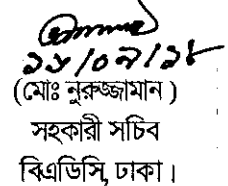 ২৬/০৭/১৮
(মোঃ নুরুজ্জামান )
সহকারী সচিব
বিএডিসি, ঢাকা।